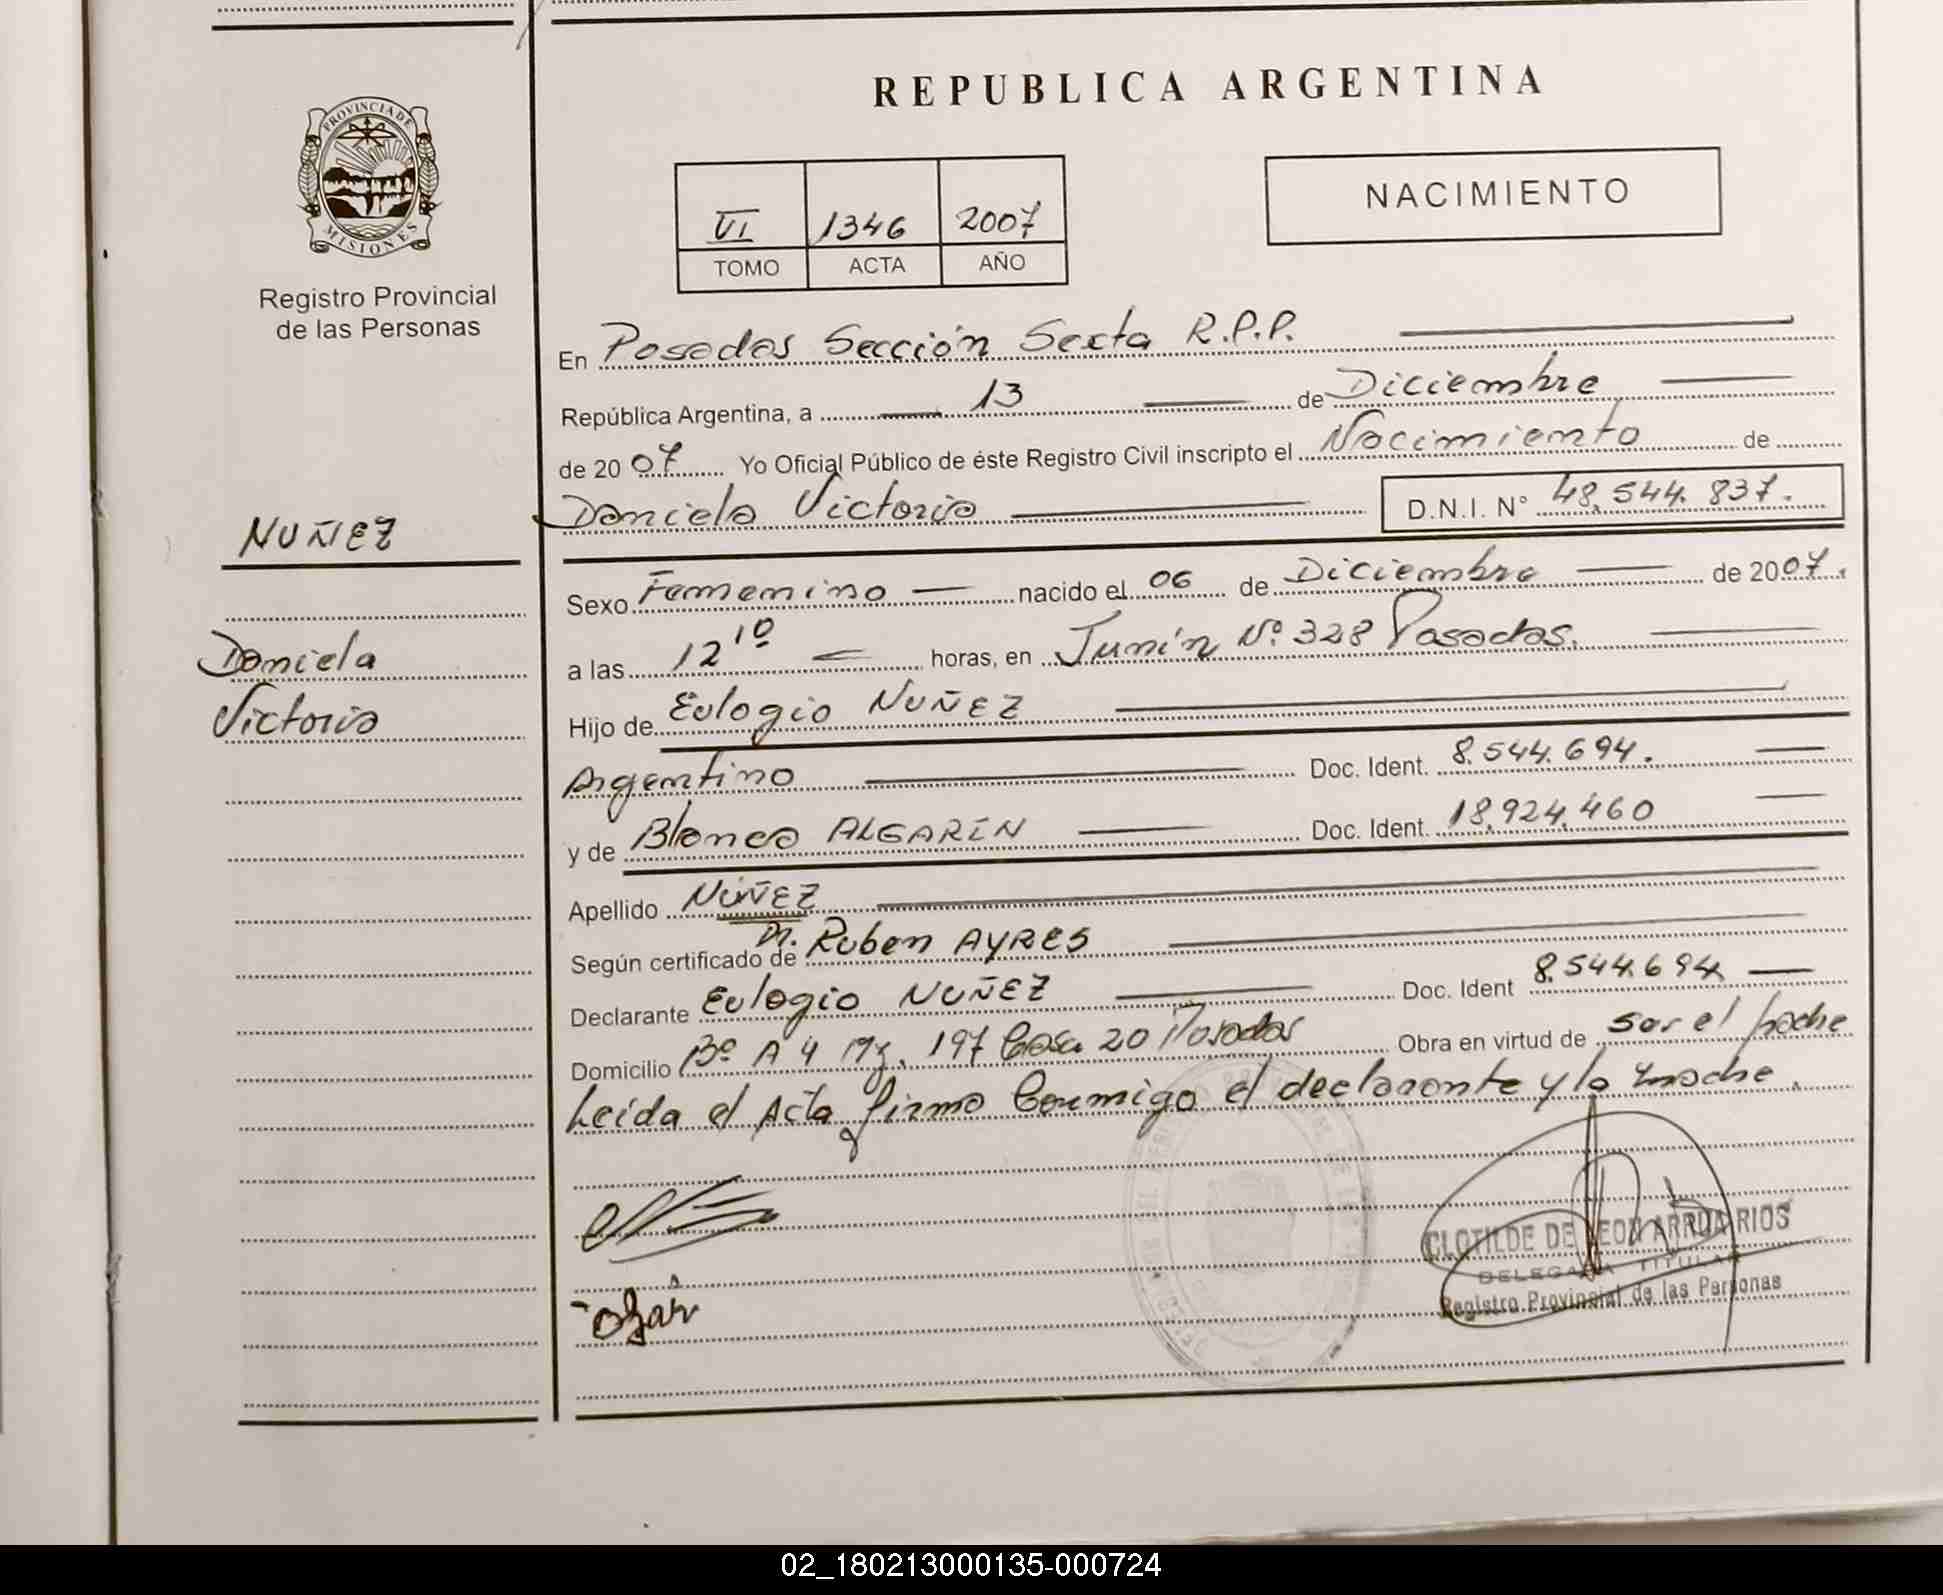 REPUBLICA ARGENTINA
PROVINCIA DE
MISIONES
Registro Provincial
de las Personas
VI 1346 2007
TOMO ACTA AÑO
NACIMIENTO
En Posadas Sección Sexta R.P.P.
República Argentina, a 13 de Diciembre
de 2007 Yo Oficial Público de éste Registro Civil inscripto el Nacimiento de
Daniela Victoria D.N.I. N° 48.544.837.
NUÑEZ
Daniela
Victoria
Sexo Femenino nacido el 06 de Diciembre de 2007.
a las 12 10 horas, en Junín Nº 328 Posadas.
Hijo de Eulogio NUÑEZ
Argentino Doc. Ident. 8.544.694.
y de Blanca ALGARÍN Doc. Ident. 18.924.460
Apellido NUÑEZ
Según certificado de Dr. Ruben AYRES
Declarante Eulogio NUÑEZ Doc. Ident 8.544.694
Domicilio Bº A 4 Mz. 197 Casa 20 Posadas Obra en virtud de ser el padre
Leída el Acta firma Conmigo el declarante y la madre.
CLOTILDE DE LEON ARRUA RIOS
DELEGADA TITULAR
Registro Provincial de las Personas
02_180213000135-000724